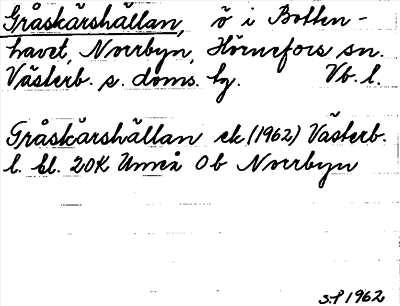 Gråskärshällan, ö i Botten-
havet, Norrbyn, Hörnefors sn.
Västerb. s. doms. lg. Vb. l.
Gråskärshällan ek (1962) Västerb.
l. bl. 20K Umeå 0b Norrbyn
1962